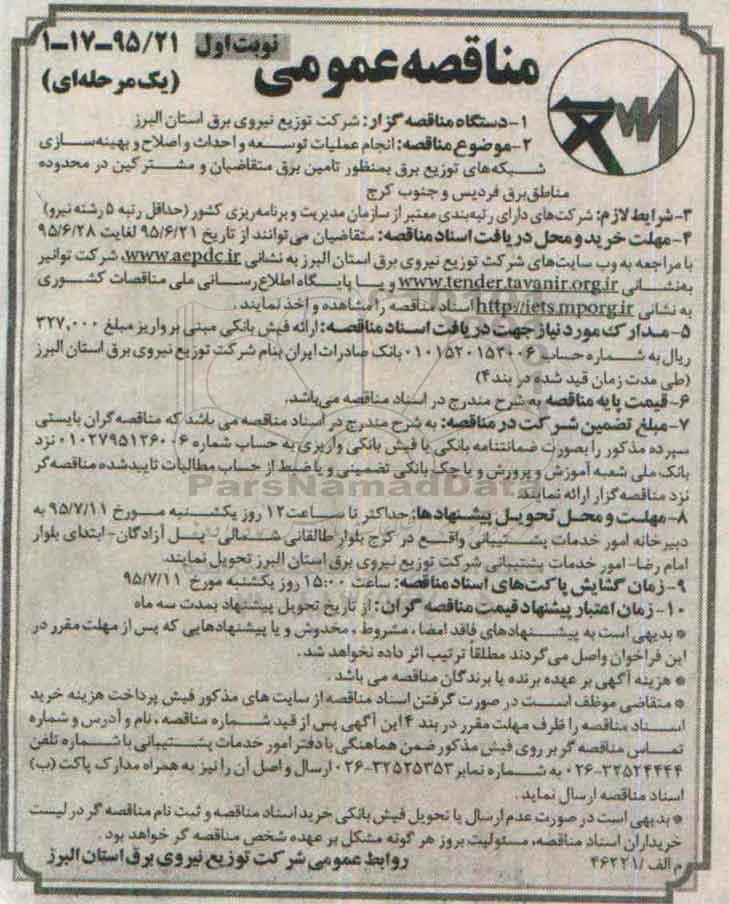 مناقصه عمومی نوبت اول ۹۵/۲۱-۱۷-۱
(یک مرحله‌ای)
۱-دستگاه مناقصه گزار: شرکت توزیع نیروی برق استان البرز
۲-موضوع مناقصه: انجام عملیات توسعه و احداث و اصلاح و بهینه‌سازی
شبکه‌های توزیع برق بمنظور تامین برق متقاضیان و مشترکین در محدوده
مناطق برق فردیس و جنوب کرج
۳-شرایط لازم: شرکت‌های دارای رتبه‌بندی معتبر از سازمان مدیریت و برنامه‌ریزی کشور (حداقل رتبه ۵ رشته نیرو)
۴-مهلت خرید و محل دریافت اسناد مناقصه: متقاضیان می‌توانند از تاریخ ۹۵/۶/۲۱ لغایت ۹۵/۶/۲۸
با مراجعه به وب سایت‌های شرکت توزیع نیروی برق استان البرز به نشانی www.aepdc.ir، شرکت توانیر
به‌نشانی www.tender.tavanir.org.ir و یا پایگاه اطلاع‌رسانی ملی مناقصات کشوری
به نشانی http://iets.mporg.ir اسناد مناقصه را مشاهده و اخذ نمایند.
۵-مدارک مورد نیاز جهت دریافت اسناد مناقصه: ارائه فیش بانکی مبنی بر واریز مبلغ ۳۲۷,۰۰۰
ریال به شماره حساب ۰۱۰۱۵۲۰۱۵۲۰۰۶ بانک صادرات ایران بنام شرکت توزیع نیروی برق استان البرز
(طی مدت زمان قید شده در بند ۴)
۶-قیمت پایه مناقصه به شرح مندرج در اسناد مناقصه می‌باشد.
۷-مبلغ تضمین شرکت در مناقصه: به شرح مندرج در اسناد مناقصه می باشد که مناقصه‌گران بایستی
سپرده مذکور را بصورت ضمانتنامه بانکی یا فیش بانکی واریزی به حساب شماره ۰۱۰۲۷۹۵۱۳۶۰۰۶ نزد
بانک ملی شعبه آموزش و پرورش و یا چک بانکی تضمینی و یا ضبط از حساب مطالبات تایید شده مناقصه‌گر
نزد مناقصه گزار ارائه نمایند.
ParsNamadData
۸-مهلت و محل تحویل پیشنهادها: حداکثر تا ساعت ۱۲ روز یکشنبه مورخ ۹۵/۷/۱۱ به
دبیرخانه امور خدمات پشتیبانی واقع در کرج بلوار طالقانی شمالی - پل آزادگان- ابتدای بلوار
امام رضا- امور خدمات پشتیبانی شرکت توزیع نیروی برق استان البرز تحویل نمایند.
۹-زمان گشایش پاکت‌های اسناد مناقصه: ساعت ۱۵:۰۰ روز یکشنبه مورخ ۹۵/۷/۱۱
۱۰-زمان اعتبار پیشنهاد قیمت مناقصه گران: از تاریخ تحویل پیشنهاد بمدت سه ماه
* بدیهی است به پیشنهادهای فاقد امضا، مشروط، مخدوش و یا پیشنهادهایی که پس از مهلت مقرر در
این فراخوان واصل می‌گردند مطلقاً ترتیب اثر داده نخواهد شد.
* هزینه آگهی بر عهده برنده یا برندگان مناقصه می باشد.
* متقاضی موظف است در صورت گرفتن اسناد مناقصه از سایت های مذکور فیش پرداخت هزینه خرید
اسناد مناقصه را ظرف مهلت مقرر در بند ۴ این آگهی پس از قید شماره مناقصه، نام و آدرس و شماره
تماس مناقصه گر بر روی فیش مذکور ضمن هماهنگی با دفتر امور خدمات پشتیبانی با شماره تلفن
۰۲۶-۳۲۵۲۴۴۴۴ به شماره نمابر ۰۲۶-۳۲۵۲۵۳۵۳ ارسال و اصل آن را نیز به همراه مدارک پاکت (ب)
اسناد مناقصه ارسال نماید.
* بدیهی است در صورت عدم ارسال یا تحویل فیش بانکی خرید اسناد مناقصه و ثبت نام مناقصه گر در لیست
خریداران اسناد مناقصه، مسئولیت بروز هر گونه مشکل بر عهده شخص مناقصه گر خواهد بود.
م الف /۴۶۲۲۱ روابط عمومی شرکت توزیع نیروی برق استان البرز